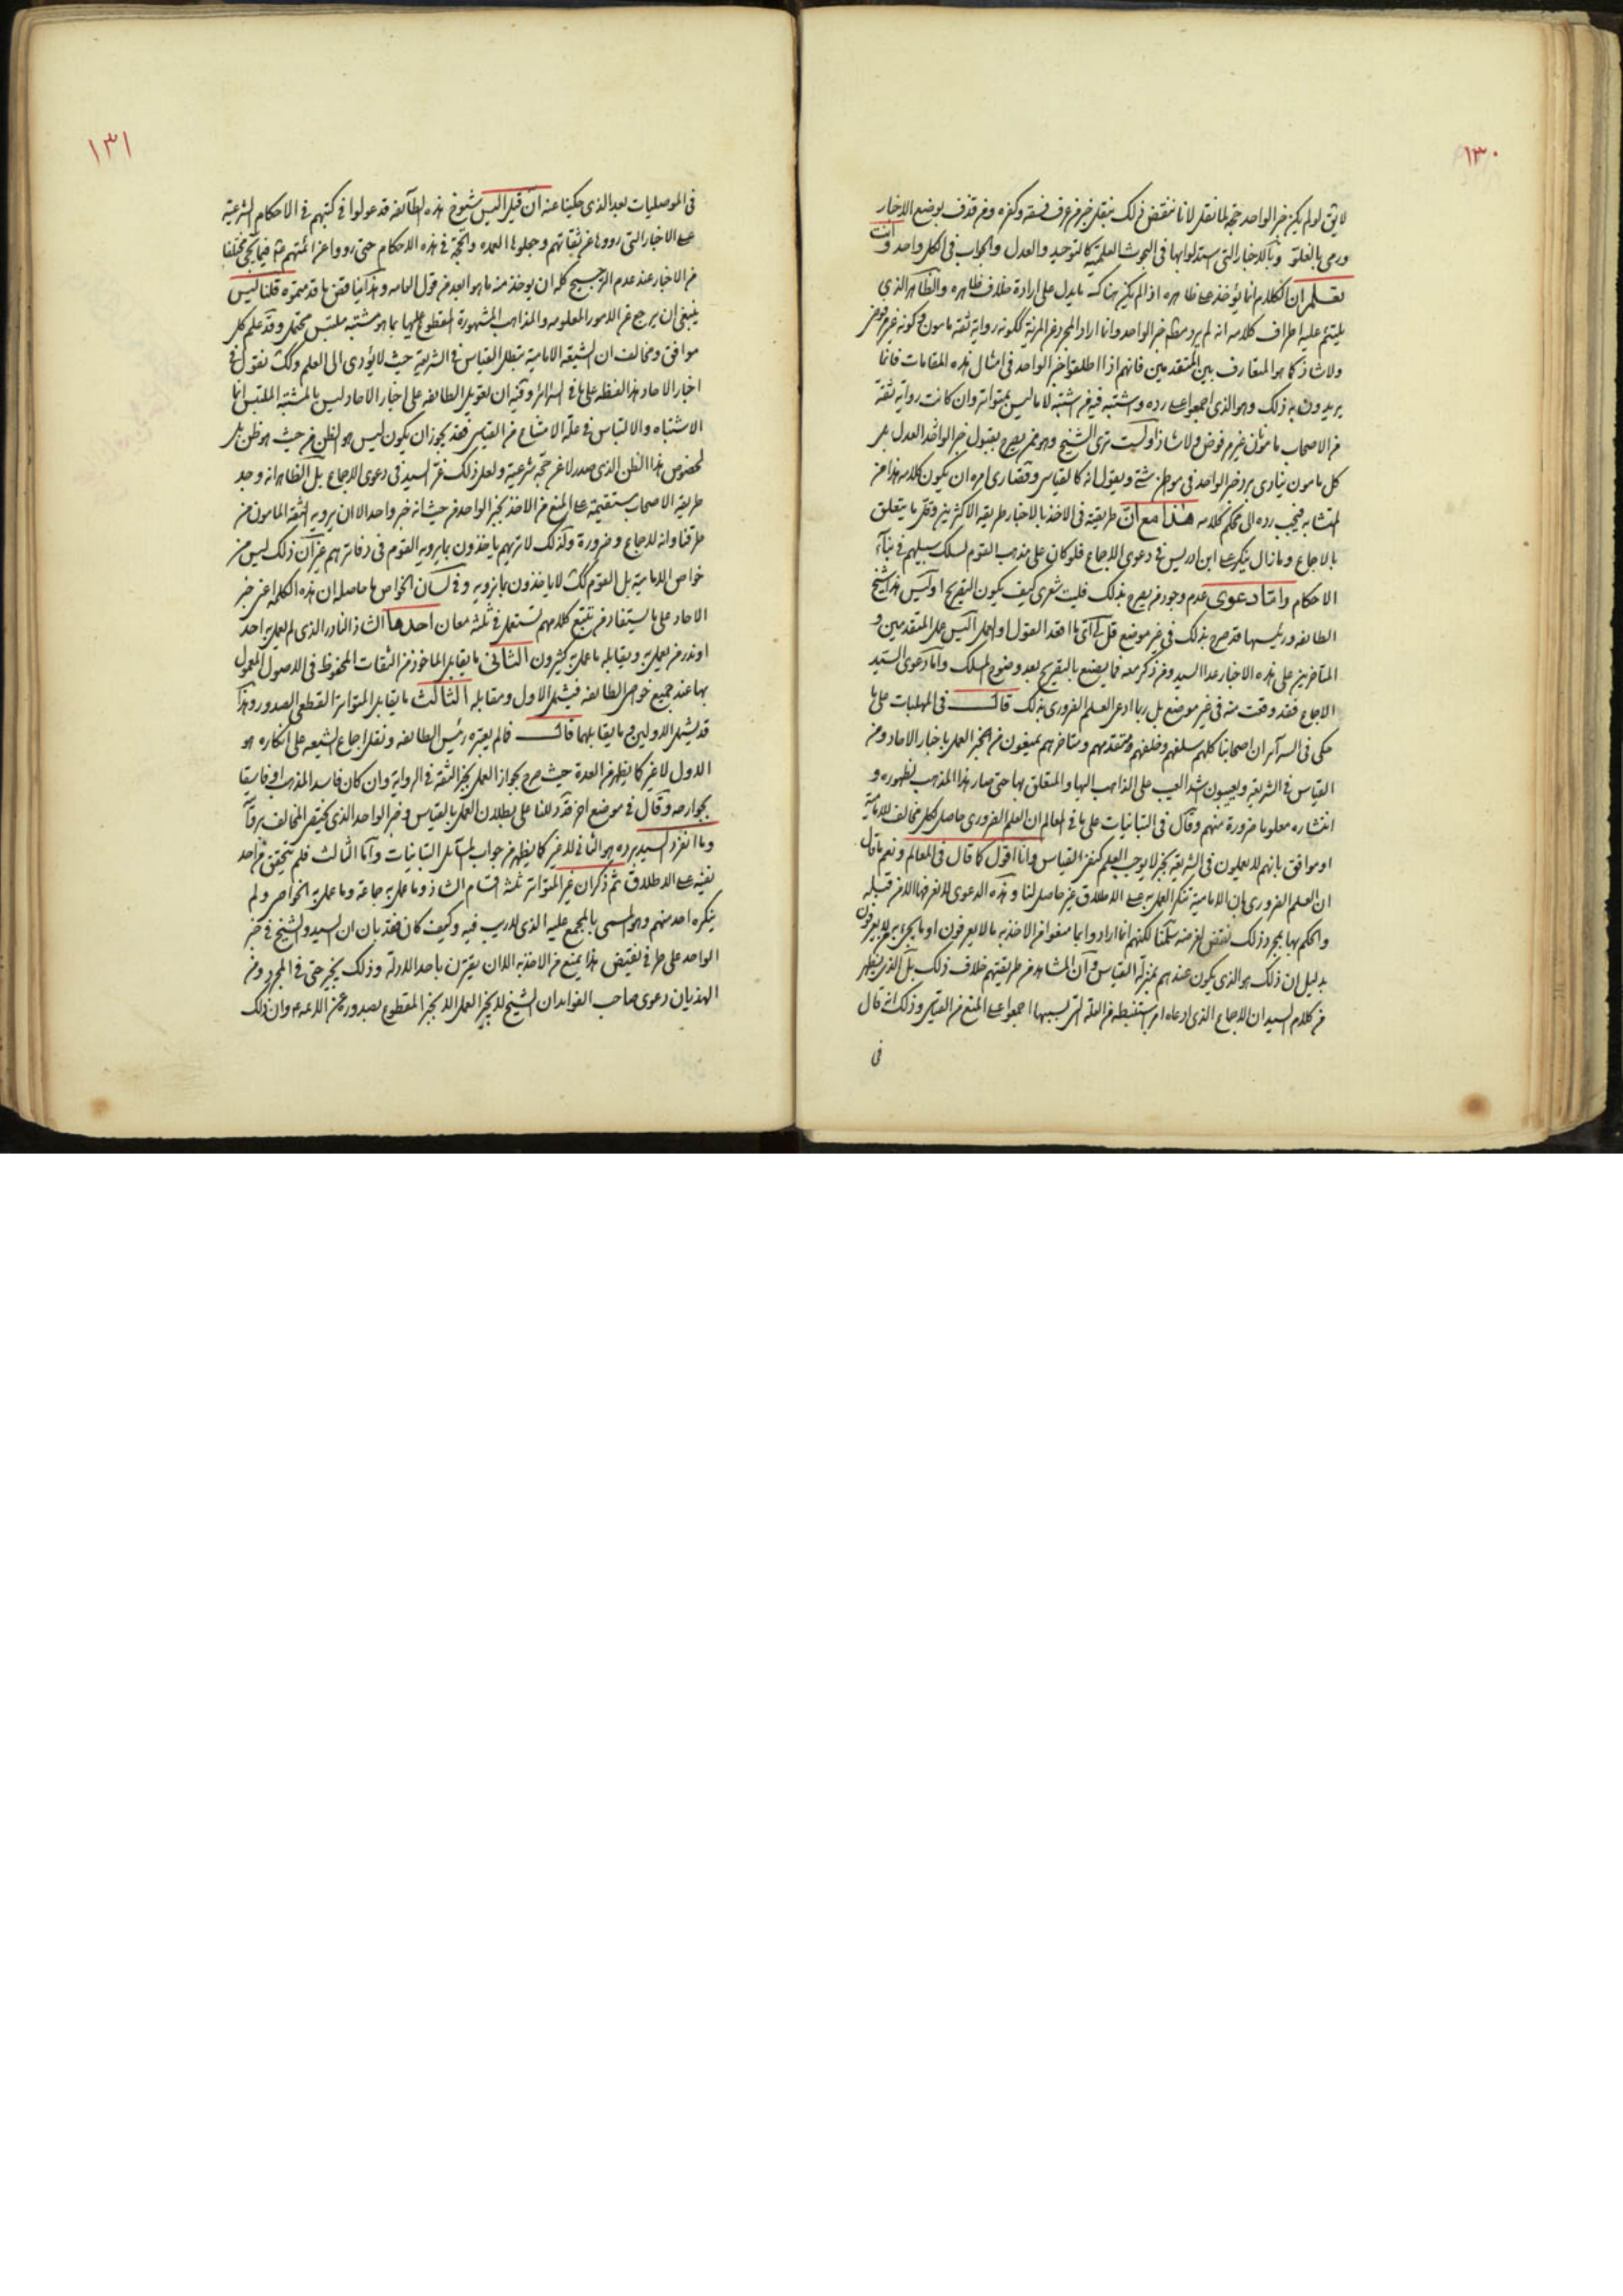 ١٣٠
لا يق لو لم يكن خبر الواحد حجة لما نقل لانا ننقض ذلك بنقل خبر من عرف فسقه وكفره ومن قذف بوضع الاخبار
ورمى بالغلو وبالاخبار التى استدلوا بها فى البحوث العلمية كالتوحيد والعدل والجواب فى الكل واحد وانت
تعلم ان الكلام انما يؤخذ على ظاهره اذا لم يكن هناك ما يدل على ارادة خلاف ظاهره والظاهر الذى
يلتئم عليه اطراف كلامه انه لم يرد مطلق خبر الواحد وانما اراد المجرد عن المزية ككونه رواية ثقة مامون وكونه غير مرفوض
ولا شاذ كما هو المتعارف بين المتقدمين فانهم اذا اطلقوا خبر الواحد فى امثال هذه المقامات فانما
يريدون به ذلك وهو الذى اجمعوا على رده واشتبه فيه من اشتبه لا ما ليس بمتواتر وان كانت رواية ثقة
من الاصحاب مامون غير مرفوض ولا شاذ اولست ترى الشيخ وهو ممن يصرح بقبول خبر الواحد العدل بل
كل مامون ينادى برد خبر الواحد فى مواطن شتى ويقول انه كالقياس وقصارى امره ان يكون كلامه هذا من
المتشابه فيجب رده الى محكم كلامه هذا مع ان طريقته فى الاخذ بالاخبار طريقه الاكثرين وقل ما يتعلق
بالاجاع وما زال ينكر على ابن ادريس فى دعوى الاجاع فلو كان على مذهب القوم لسلك سبيلهم فى بناء
الاحكام واما دعوى عدم وجود من يصرح بذلك فليت شعرى كيف يكون التصريح اوليس هذا شيخ
الطائفه ورئيسها قد صرح بذلك فى غير موضع قل لى اى ما افقد القول او العمل اليس عمل المتقدمين و
المتاخرين على هذه الاخبار عدا السيد ومن ذكر معه فما يصنع بالتصريح بعد وضوح المسلك واما دعوى السيد
الاجاع فقد وقعت منه فى غير موضع بل ربما ادعى العلم الضرورى بذلك قال فى المهلبات على ما
حكى فى السرآئر ان اصحابنا كلهم سلفهم وخلفهم ومتقدمهم ومتاخرهم يمنعون من العمل باخبار الاحاد ومن
القياس فى الشريعه ويعيبون اشد العيب على الذاهب اليها والمتعلق بها حتى صار هذا المذهب لظهوره و
انتشاره معلوما ضرورة منهم وقال فى التبانيات على ما فى المعالم ان العلم الضرورى حاصل لكل مخالف للامامية
او موافق بانهم لا يعملون فى الشريعة بخبر لا يوجب العلم كنفى القياس وانا اقول كما قال فى المعالم ونعم ما قال
ان العلم الضرورى بان الامامية تنكر العمل به على الاطلاق غير حاصل لنا وهذه الدعوى لم نعرفها الا من قبله
والحكم بها بمجرد ذلك نقض لغرضه سلمنا لكنهم انما ارادوا بما منعوا من الاخذ به ما لا يعرفون او ما يجئ به من لا يعرفون
بدليل ان ذلك هو الذى يكون عندهم بمنزلة القياس وان المشاهد من طريقتهم خلاف ذلك بل الذى يظهر
من كلام السيد ان الاجاع الذى ادعاه امر استنبطه من العلة التى بسببها اجمعوا على المنع من القياس وذلك انه قال
فى
١٣١
فى الموصليات بعد الذى حكينا عنه ان قيل اليس شيوخ هذه الطآئفه قد عولوا فى كتبهم فى الاحكام الشرعية
على الاخبار التى رووها عن ثقاتهم وجعلوها العمده والحجة فى هذه الاحكام حتى رووا عن ائمتهم ع فيما يجئ مختلفا
من الاخبار عند عدم الترجيح كله ان يوخذ منه ما هو ابعد من قول العامه وهذا يناقض ما قدمتموه قلنا ليس
ينبغى ان يرجع عن الامور المعلومه والمذاهب المشهورة المقطوع عليها بما هو مشتبه ملتبس محتمل وقد علم كل
موافق ومخالف ان الشيعة الامامية تبطل القياس فى الشريعة حيث لا يؤدى الى العلم وكك نقول فى
اخبار الاحاد هذا لفظه على ما فى السرائر وفيه ان تعويل الطائفه على اخبار الاحاد ليس بالمشتبه الملتبس انما
الاشتباه والالتباس فى علة الامتناع من القياس فقد يجوز ان يكون ليس هو الظن من حيث هو ظن بل
لخصوص هذا الظن الذى صدر لا عن حجة شرعية ولعل ذلك غر السيد فى دعوى الاجاع بل الظاهر انه وجد
طريقه الاصحاب مستقيمة على المنع من الاخذ بخبر الواحد من حيث انه خبر واحد الا ان يرويه الثقة المامون من
طرقنا وانه للاجاع وضرورة وكذلك لا تريهم ياخذون بما يرويه القوم فى دفاترهم غير ان ذلك ليس من
خواص الامامية بل القوم كك لا ياخذون بما نرويه وفى لسان الخواص ما حاصله ان هذه الكلمه اعنى خبر
الاحاد على ما يستفاد من تتبع كلامهم تستعمل فى ثلثه معان احدها الشاذ النادر الذى لم يعمل به احد
او ندر من يعمل به ويقابله ما عمل به كثيرون الثانى ما يقابل الماخوذ من الثقات المحفوظ فى الاصول المعمول
بها عند جميع خواص الطائفه فيشمل الاول ومقابله الثالث ما يقابل المتواتر القطعى الصدور وهذا
قد يشمل الاولين وما يقابلهما قال فالم يعتبره رئيس الطائفه ونقل اجاع الشيعه على انكاره هو
الاول لا غير كما يظهر من العدة حيث صرح بجواز العمل بخبر الثقة فى الرواية وان كان فاسد المذهب او فاسقا
بجوارحه وقال فى موضع اخر قد دللنا على بطلان العمل بالقياس وخبر الواحد الذى يختص المخالف بروآيته
وما انفرد السيد برده هو الثانى لا غير كما يظهر من جواب المسآئل التبانيات واما الثالث فلم يتحقق من احد
نفيه على الاطلاق ثم ذكر ان غير المتواتر ثلثة اقسام الشاذ وما عمل به جماعة وما عمل به الخواص ولم
ينكره احد منهم وهو المسمى بالمجمع عليه الذى لا ريب فيه وكيف كان فقد بان ان السيد والشيخ فى خبر
الواحد على طرفى نقيض هذا يمنع من الاخذ به الا ان يقترن باحد الادلة وذلك يجيز حتى فى المجرد ومن
الهذيان دعوى صاحب الفوايد ان الشيخ لا يجيز العمل الا بخبر المقطوع بصدوره عن الائمه وان ذلك